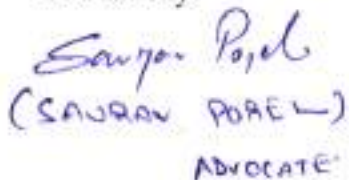 Saurav Porel
(SAURAV POREL)
ADVOCATE